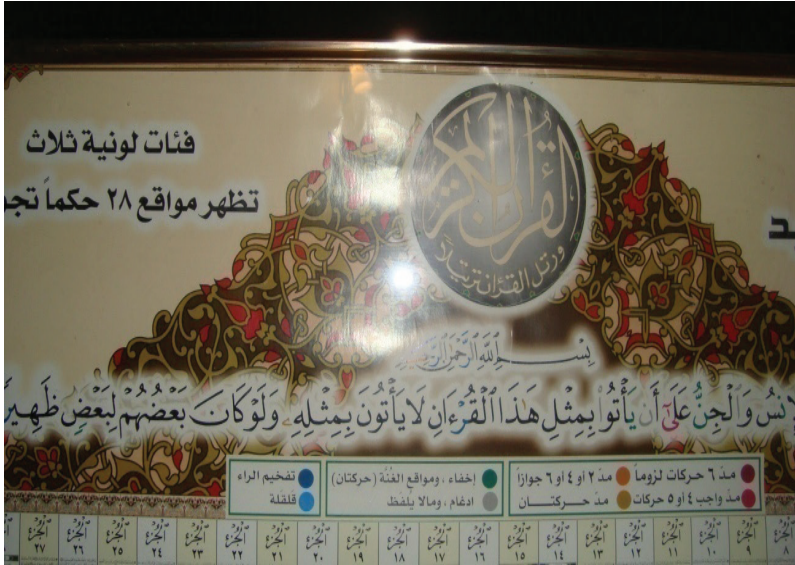 فئات لونية ثلاث
تظهر مواقع ٢٨ حكماً تجو
القرآن الكريم
ورتل القرآن ترتيلا
بِسْمِ ٱللَّهِ ٱلرَّحْمَٰنِ ٱلرَّحِيمِ
لْإِنسُ وَٱلْجِنُّ عَلَىٰٓ أَن يَأْتُوا۟ بِمِثْلِ هَٰذَا ٱلْقُرْءَانِ لَا يَأْتُونَ بِمِثْلِهِۦ وَلَوْ كَانَ بَعْضُهُمْ لِبَعْضٍ ظَهِيرً
مدّ ٦ حركات لزوماً مدّ ٢ أو ٤ أو ٦ جوازاً
مدّ واجب ٤ أو ٥ حركات مدّ حركتــان
إخفاء، ومواقع الغُنَّة (حركتان)
ادغام، ومالا يلفظ
تفخيم الراء
قلقلة
الجزء ٨ الجزء ٩ الجزء ١٠ الجزء ١١ الجزء ١٢ الجزء ١٣ الجزء ١٤ الجزء ١٥ الجزء ١٦ الجزء ١٧ الجزء ١٨ الجزء ١٩ الجزء ٢٠ الجزء ٢١ الجزء ٢٢ الجزء ٢٣ الجزء ٢٤ الجزء ٢٥ الجزء ٢٦ الجزء ٢٧